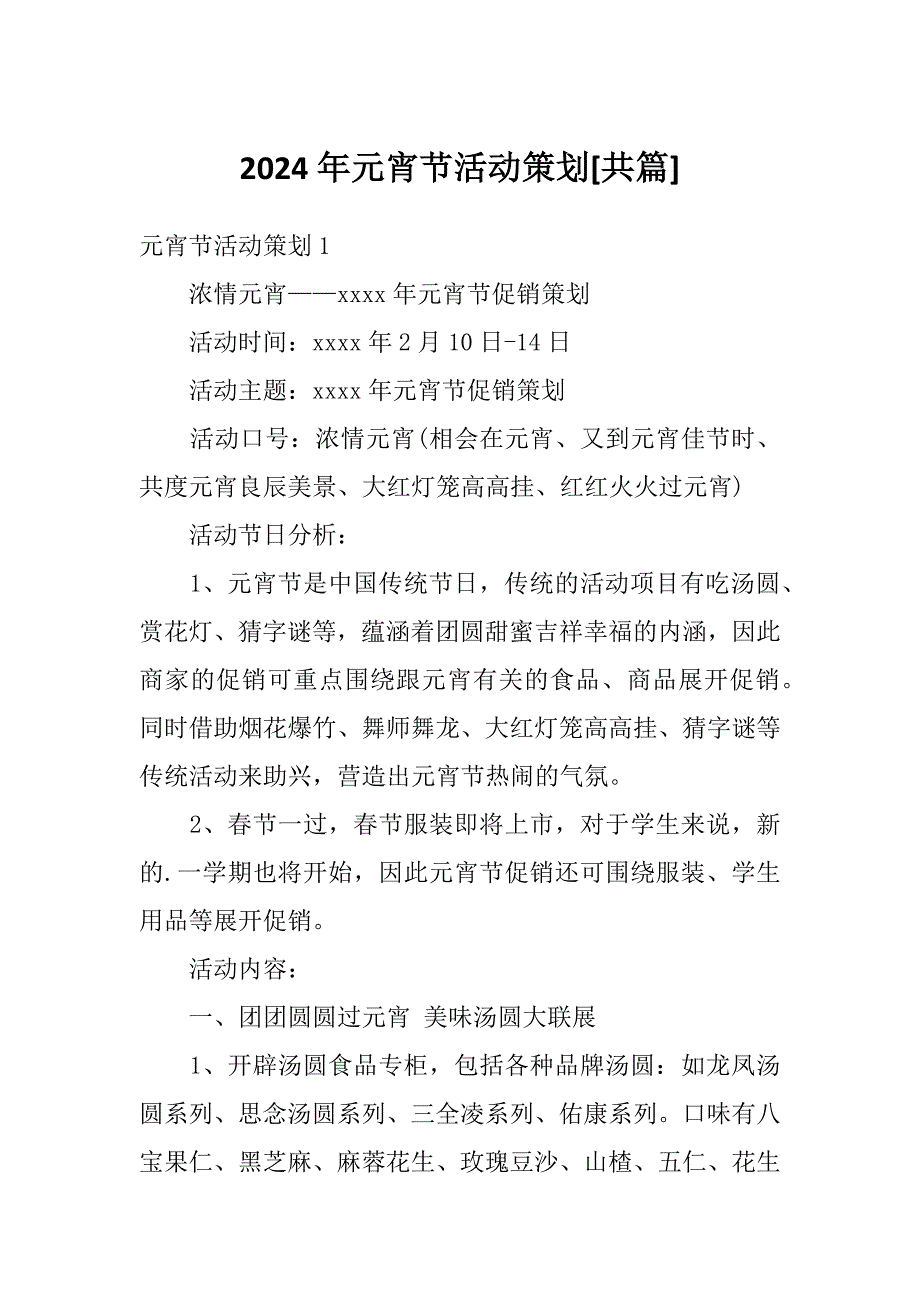 2024 年元宵节活动策划[共篇]
元宵节活动策划 1
浓情元宵——xxxx 年元宵节促销策划
活动时间：xxxx 年 2 月 10 日-14 日
活动主题：xxxx 年元宵节促销策划
活动口号：浓情元宵(相会在元宵、又到元宵佳节时、
共度元宵良辰美景、大红灯笼高高挂、红红火火过元宵)
活动节日分析：
1、元宵节是中国传统节日，传统的活动项目有吃汤圆、
赏花灯、猜字谜等，蕴涵着团圆甜蜜吉祥幸福的内涵，因此
商家的促销可重点围绕跟元宵有关的食品、商品展开促销。
同时借助烟花爆竹、舞师舞龙、大红灯笼高高挂、猜字谜等
传统活动来助兴，营造出元宵节热闹的气氛。
2、春节一过，春节服装即将上市，对于学生来说，新
的.一学期也将开始，因此元宵节促销还可围绕服装、学生
用品等展开促销。
活动内容：
一、团团圆圆过元宵 美味汤圆大联展
1、开辟汤圆食品专柜，包括各种品牌汤圆：如龙凤汤
圆系列、思念汤圆系列、三全凌系列、佑康系列。口味有八
宝果仁、黑芝麻、麻蓉花生、玫瑰豆沙、山楂、五仁、花生